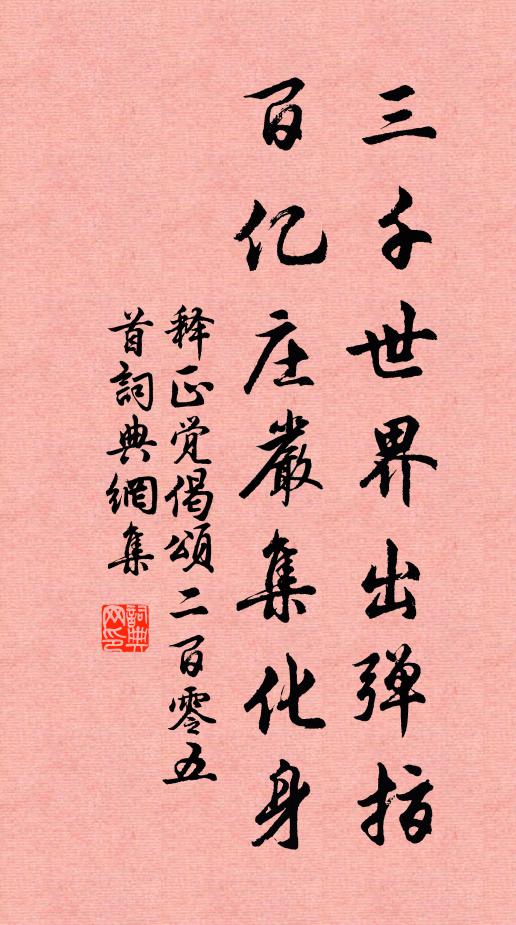 三千世界出弹指
百亿庄嚴集化身
释正觉偈頌二百零五
首詞典網集
詞典
网印